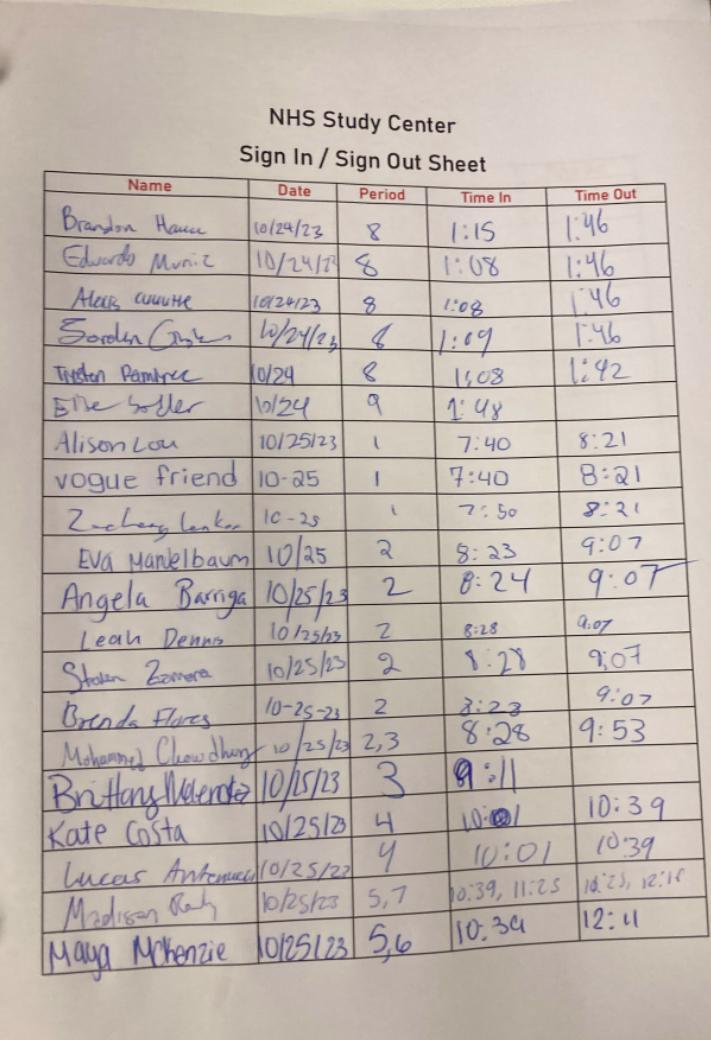 NHS Study Center
Sign In / Sign Out Sheet
Name Date Period Time In Time Out
Brandon 10/24/23 8 1:15 1:46
Edwardo Muniz 10/24/23 8 1:08 1:46
Alexis 10/24/23 8 1:08 1:46
10/24/23 8 1:09 1:46
Trysten Ramirez 10/24 8 1:08 1:42
Elise 10/24 9 1:48
Alison Lou 10/25/23 1 7:40 8:21
vogue friend 10-25 1 7:40 8:21
10-25 1 7:50 8:21
Eva Mandelbaum 10/25 2 8:23 9:07
Angela Barriga 10/25/23 2 8:24 9:07
Leah Dennis 10/25/23 2 8:28 9:07
Zamora 10/25/23 2 8:28 9:07
Brenda Flores 10-25-23 2 8:23 9:07
Mohammed Chowdhury 10/25/23 2,3 8:28 9:53
Brittany 10/25/23 3 9:11
Kate Costa 10/25/23 4 10:01 10:39
Lucas 10/25/23 4 10:01 10:39
Madison 10/25/23 5,7 10:39, 11:25
Maya McKenzie 10/25/23 5,6 10:39 12:11